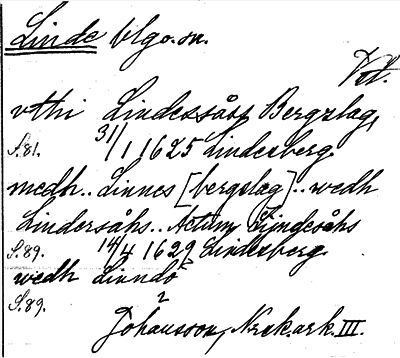 Linde blgo. sn.
Vstl.
vthi Lindessåss Bergzlag,
S. 81. 31/1 1625 Lindesberg.
medh.. Linnes [bergslag].. wedh
Lindersåhs.. Actum Lijndesåhs
S. 89. 14/4 1629 Lindesberg.
wedh Linndö
S. 89. 2
Johansson, Nrek. ark. III.